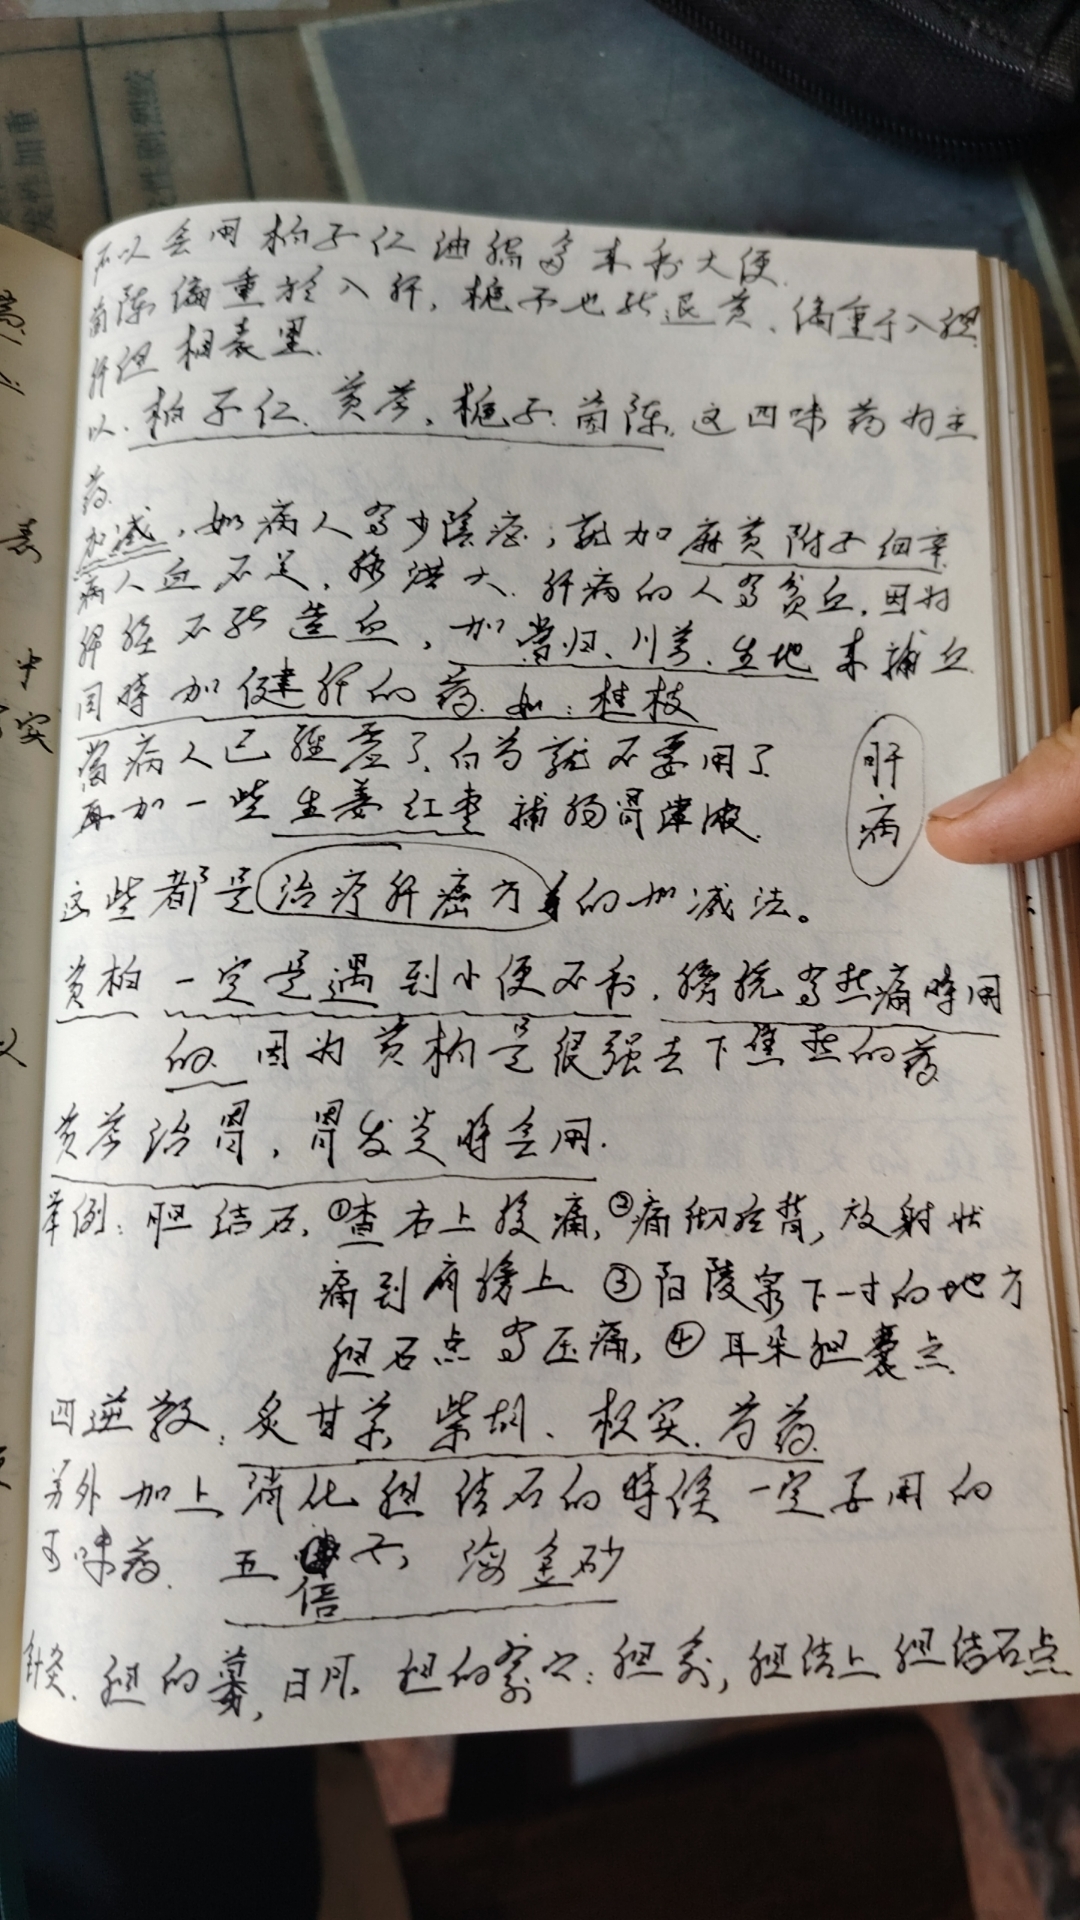 所以会用柏子仁油脂多来利大便.
茵陈偏重於入肝，栀子也能退黄、偏重于入胆.
肝胆相表里.
以.柏子仁.黄芩、栀子.茵陈.这四味药为主
药.
加减，如病人有少阴症，就加麻黄附子细辛
病人血不足，脉洪大.肝病的人有贫血.因为
肝脏不能造血，加当归、川芎、生地来补血
同時加健肝的药.如：桂枝
当病人已经虚了、白芍就不要用了
再加一些生姜红枣補肠胃津液.
肝病
这些都是治疗肝癌方的加减法。
黄柏一定是遇到小便不利.膀胱有热痛時用
的.因为黄柏是很强去下焦热的药
黄芩治胃，胃发炎時会用.
举例：胆结石.①查右上腹痛，②痛彻後背，放射状
痛到肩膀上③阳陵泉下一寸的地方
胆石点有压痛，④耳朵胆囊点
四逆散：炙甘草、柴胡、枳实.芍药.
另外加上消化胆结石的時候一定要用的
味药.五倍子，海金砂
針灸.胆的募，日月.胆的俞穴：胆俞，胆结上胆结石点